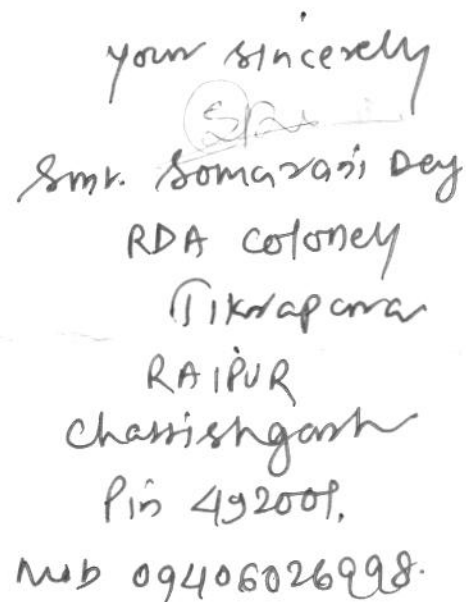 your sincerely
Smt. Somarani Dey
RDA coloney
Tikrapara
RAIPUR
Chattishgarh
Pin 492001.
Mob 09406026998.